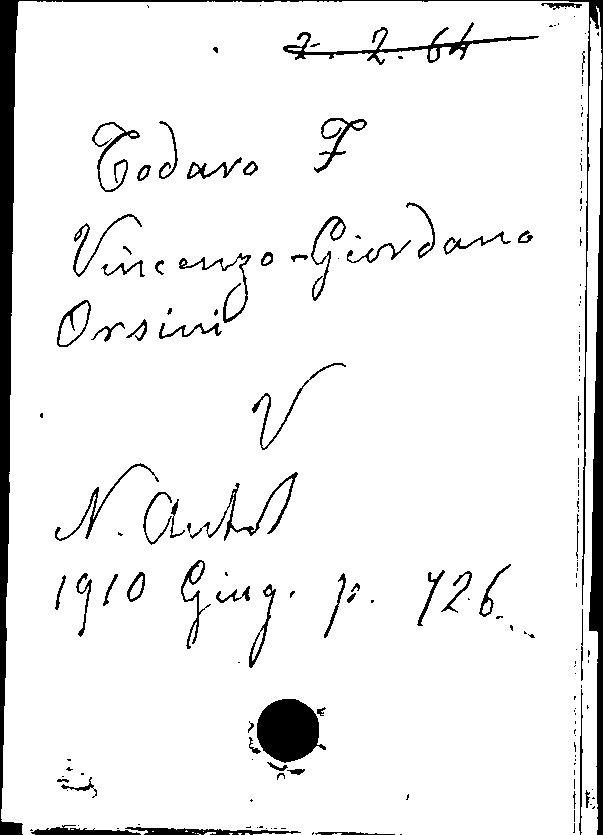 2. 2. 64
Todaro F
Vincenzo-Giordano
Orsini
V
N. Antol
1910 Giug. p. 726